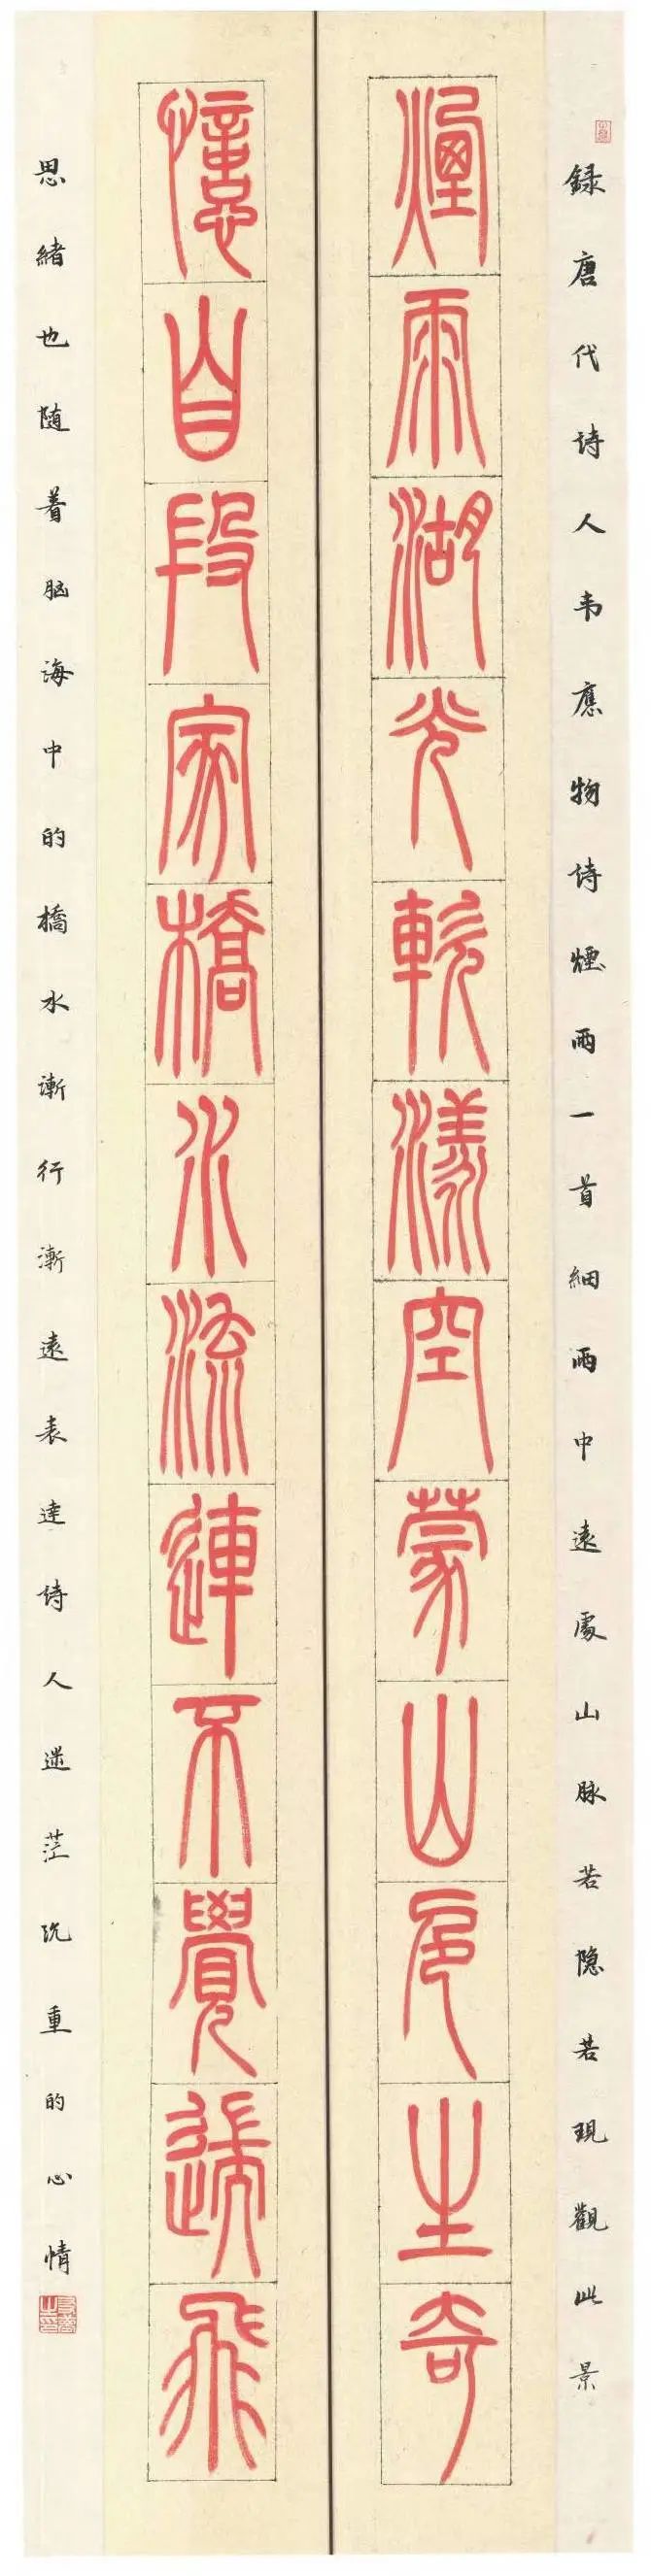 録唐代詩人韦應物詩煙雨一首細雨中遠處山脉若隐若現觀此景
煙雨湖光軟漾空蒙山色生奇
憶自段家橋水流連不覺飛
思緒也随着脑海中的橋水漸行漸遠表達詩人迷茫沉重的心情